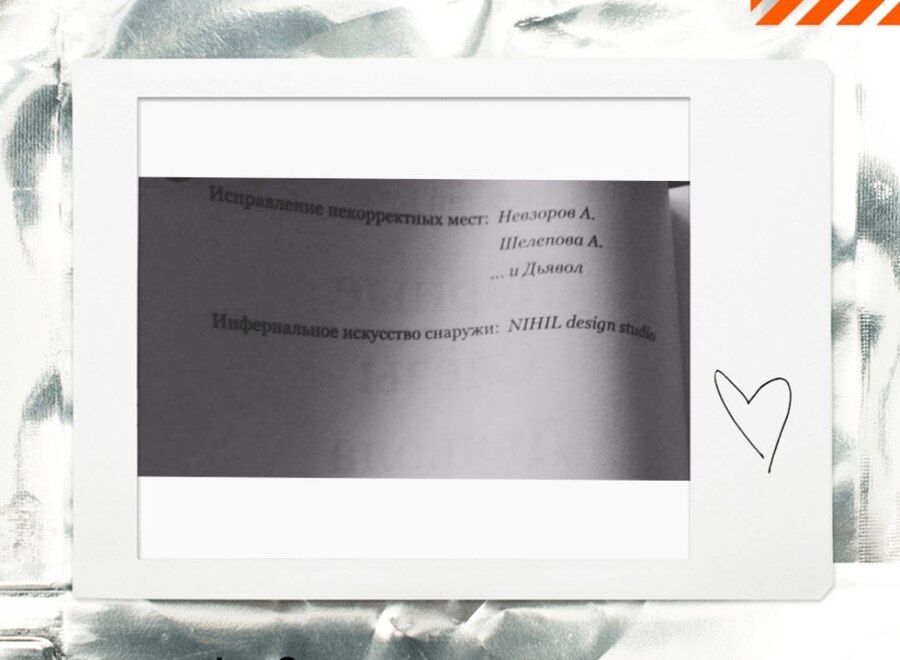 Исправление некорректных мест: Невзоров А.
Шелепова А.
... и Дьявол
Инфернальное искусство снаружи: NIHIL design studio